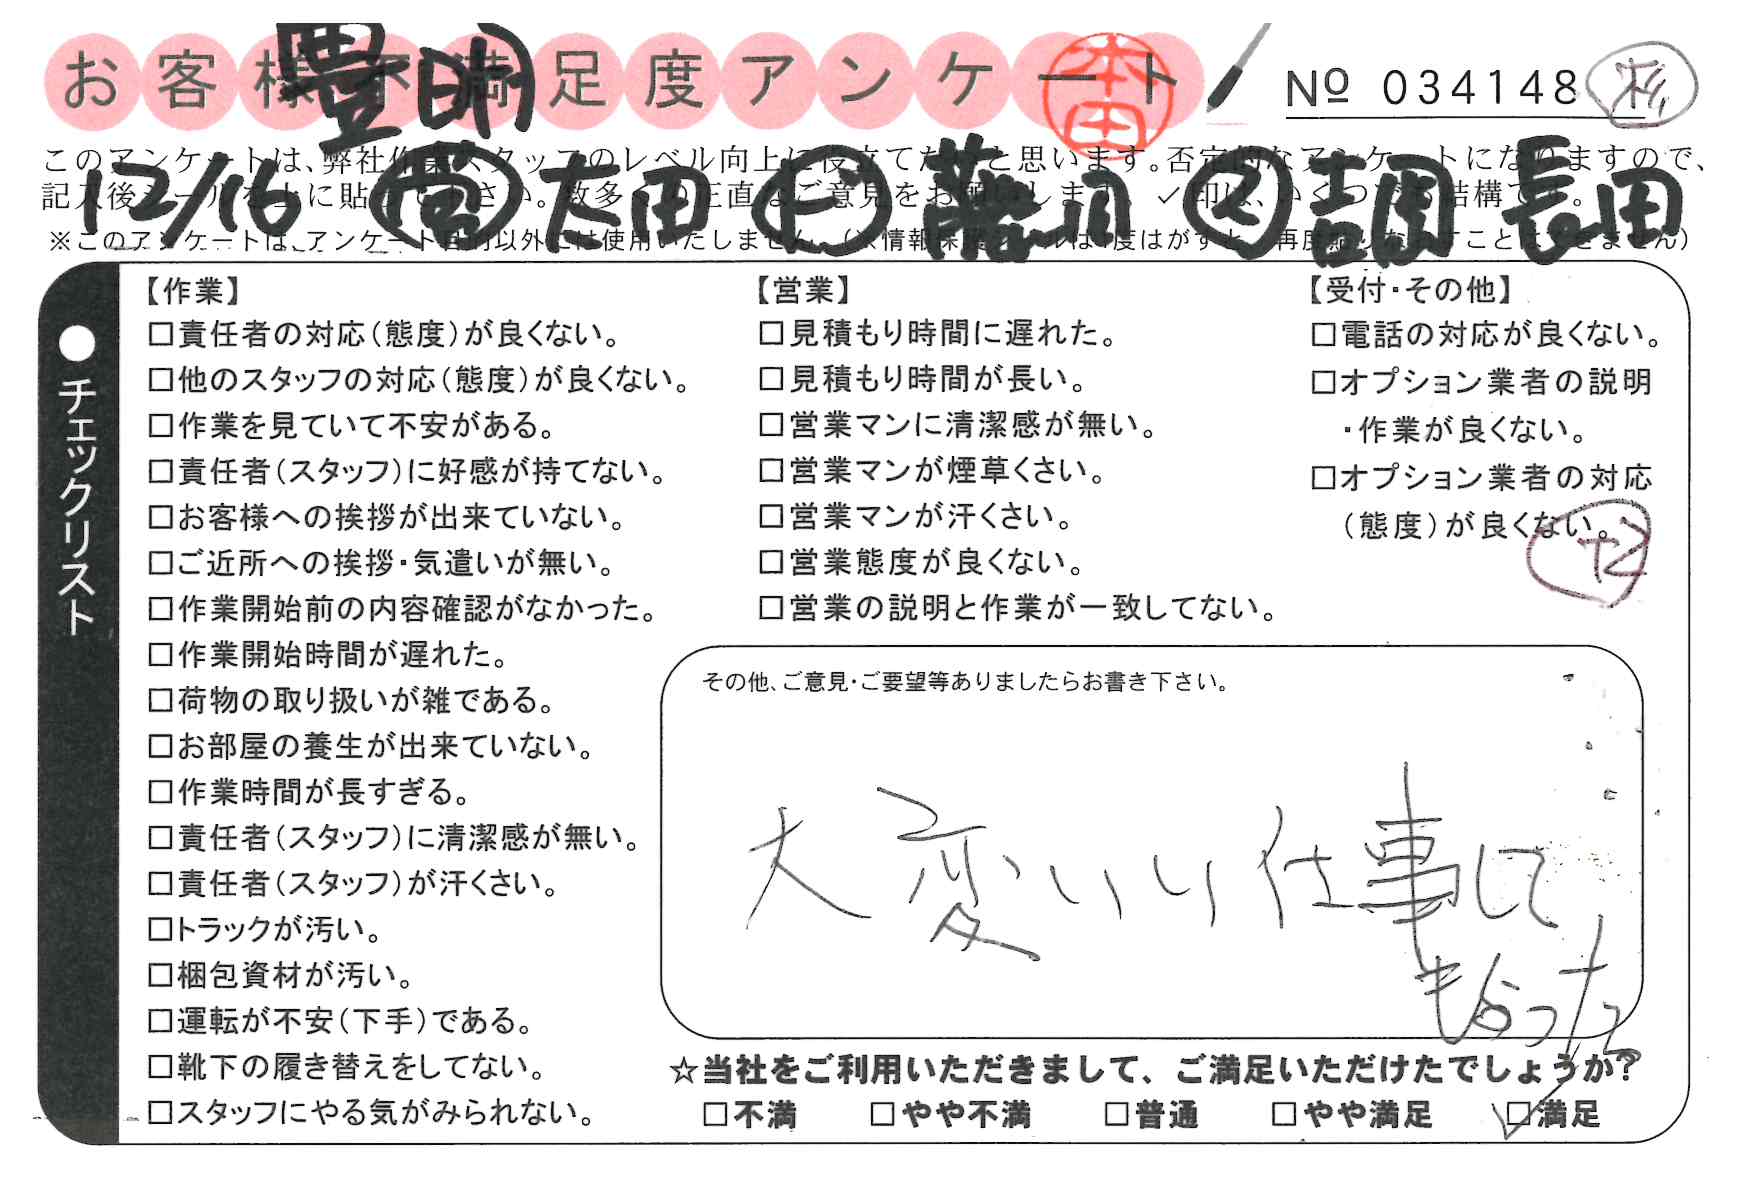 お客様不満足度アンケート
豊明
本田
Nº 034148
杉
このアンケートは、弊社作業スタッフのレベル向上に役立てたいと思います。否定的なアンケートになりますので、
記入後シールを上に貼って下さい。数多くの正直なご意見をお願いします。✓印は、いくつでも結構です。
12/16 営 太田 ド 藤須 メ 吉岡 長田
※このアンケートは、アンケート目的以外には使用いたしません。(※情報保護シールは1度はがすと、再度貼りなおすことはできません)
●チェックリスト
【作業】
□責任者の対応(態度)が良くない。
□他のスタッフの対応(態度)が良くない。
□作業を見ていて不安がある。
□責任者(スタッフ)に好感が持てない。
□お客様への挨拶が出来ていない。
□ご近所への挨拶・気遣いが無い。
□作業開始前の内容確認がなかった。
□作業開始時間が遅れた。
□荷物の取り扱いが雑である。
□お部屋の養生が出来ていない。
□作業時間が長すぎる。
□責任者(スタッフ)に清潔感が無い。
□責任者(スタッフ)が汗くさい。
□トラックが汚い。
□梱包資材が汚い。
□運転が不安(下手)である。
□靴下の履き替えをしてない。
□スタッフにやる気がみられない。
【営業】
□見積もり時間に遅れた。
□見積もり時間が長い。
□営業マンに清潔感が無い。
□営業マンが煙草くさい。
□営業マンが汗くさい。
□営業態度が良くない。
□営業の説明と作業が一致してない。
【受付・その他】
□電話の対応が良くない。
□オプション業者の説明
・作業が良くない。
□オプション業者の対応
(態度)が良くない。
その他、ご意見・ご要望等ありましたらお書き下さい。
大変いい仕事して
もらった
☆当社をご利用いただきまして、ご満足いただけたでしょうか?
□不満 □やや不満 □普通 □やや満足 ☑満足